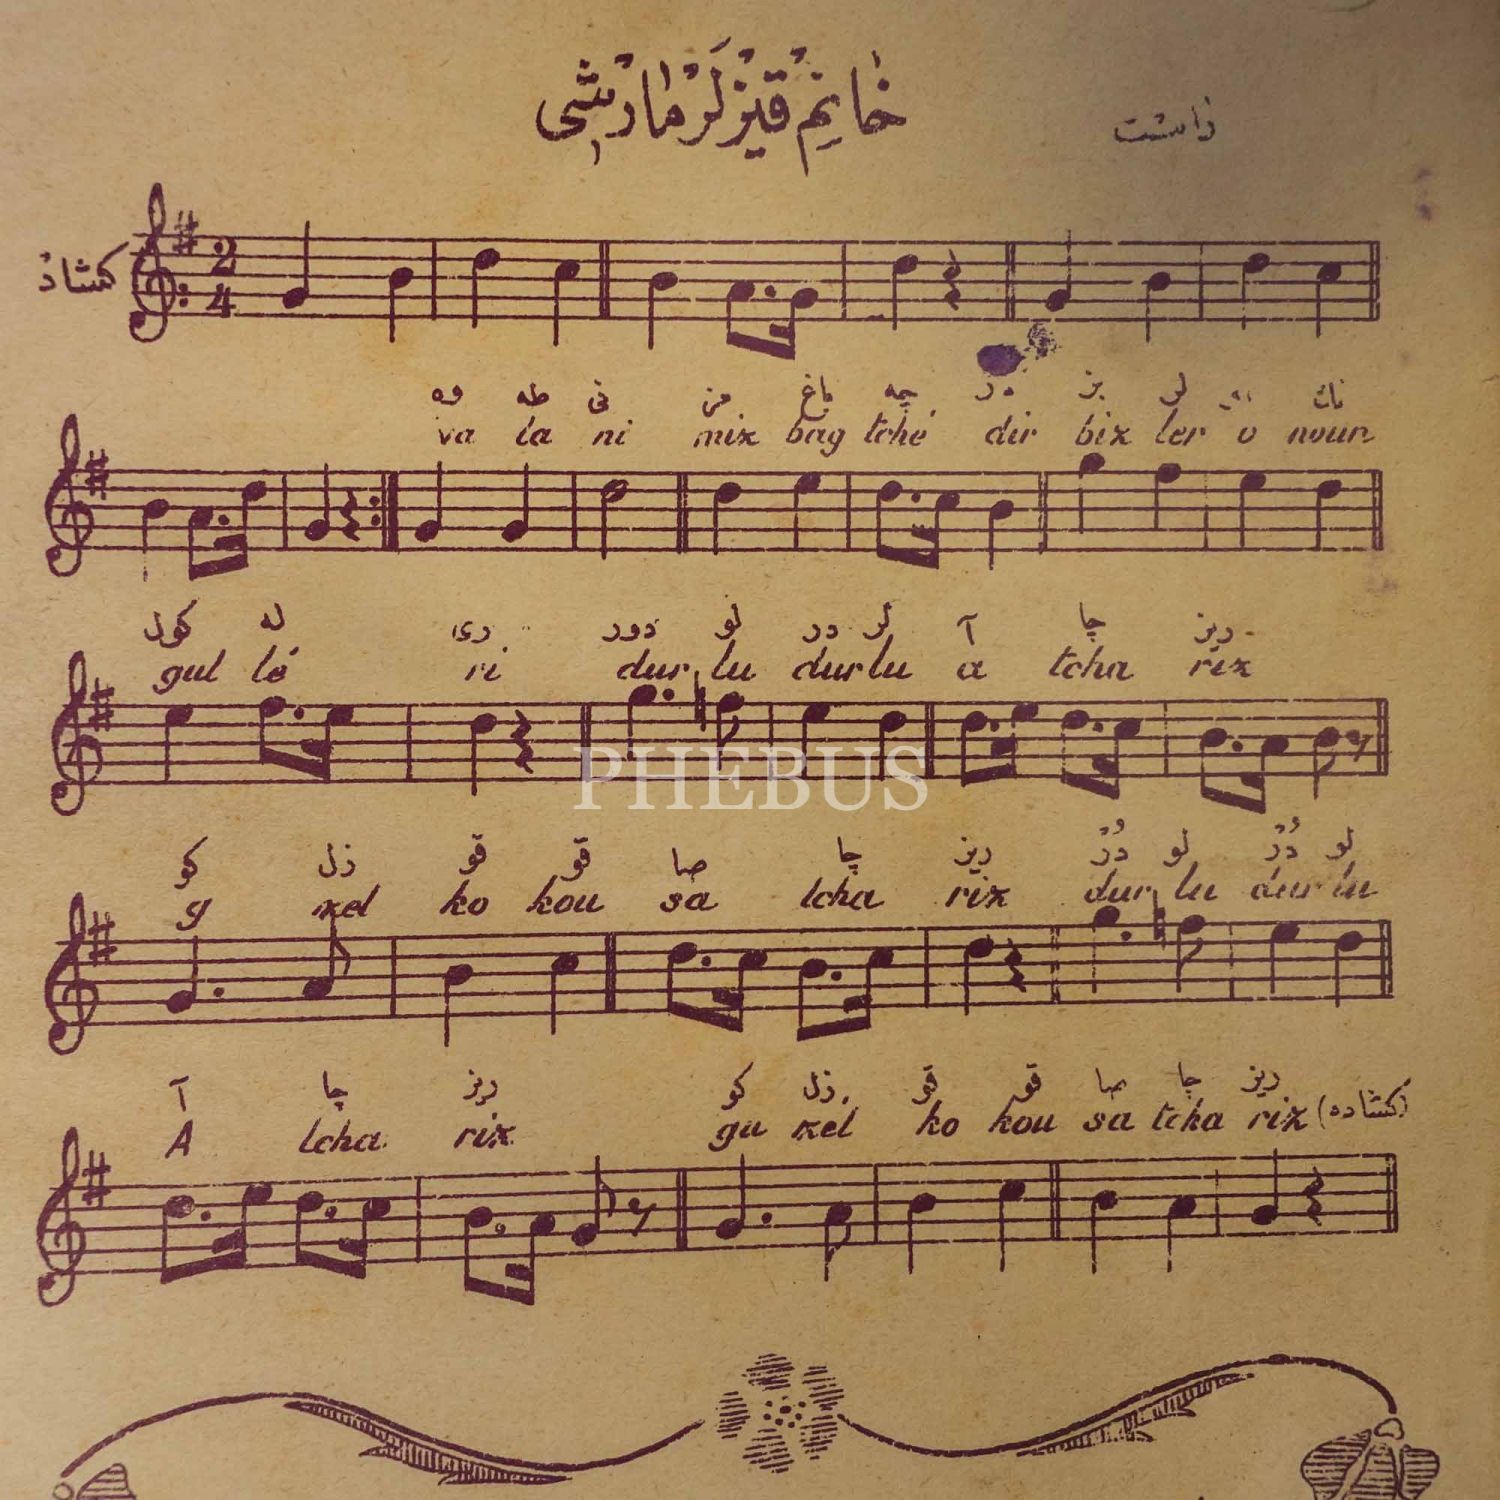 خانم قیزلر مارشی
راست
كشاد
2/4
وه طه نی مز باغ چه در بز لر نك
va ta ni mix bag tché dir bix ler o noun
كول له ری دور لو در لو آ چا ریز
gul lé ri dur lu dur lu a tcha rix
PHEBUS
كو زل قو قو صا چا ریز دُر لو دُر لو
g xel ko kou sa tcha rix dur lu dur lu
آ چا ریز كو زل قو قو صا چا ریز (كشاده)
A tcha rix gu xel ko kou sa tcha rix